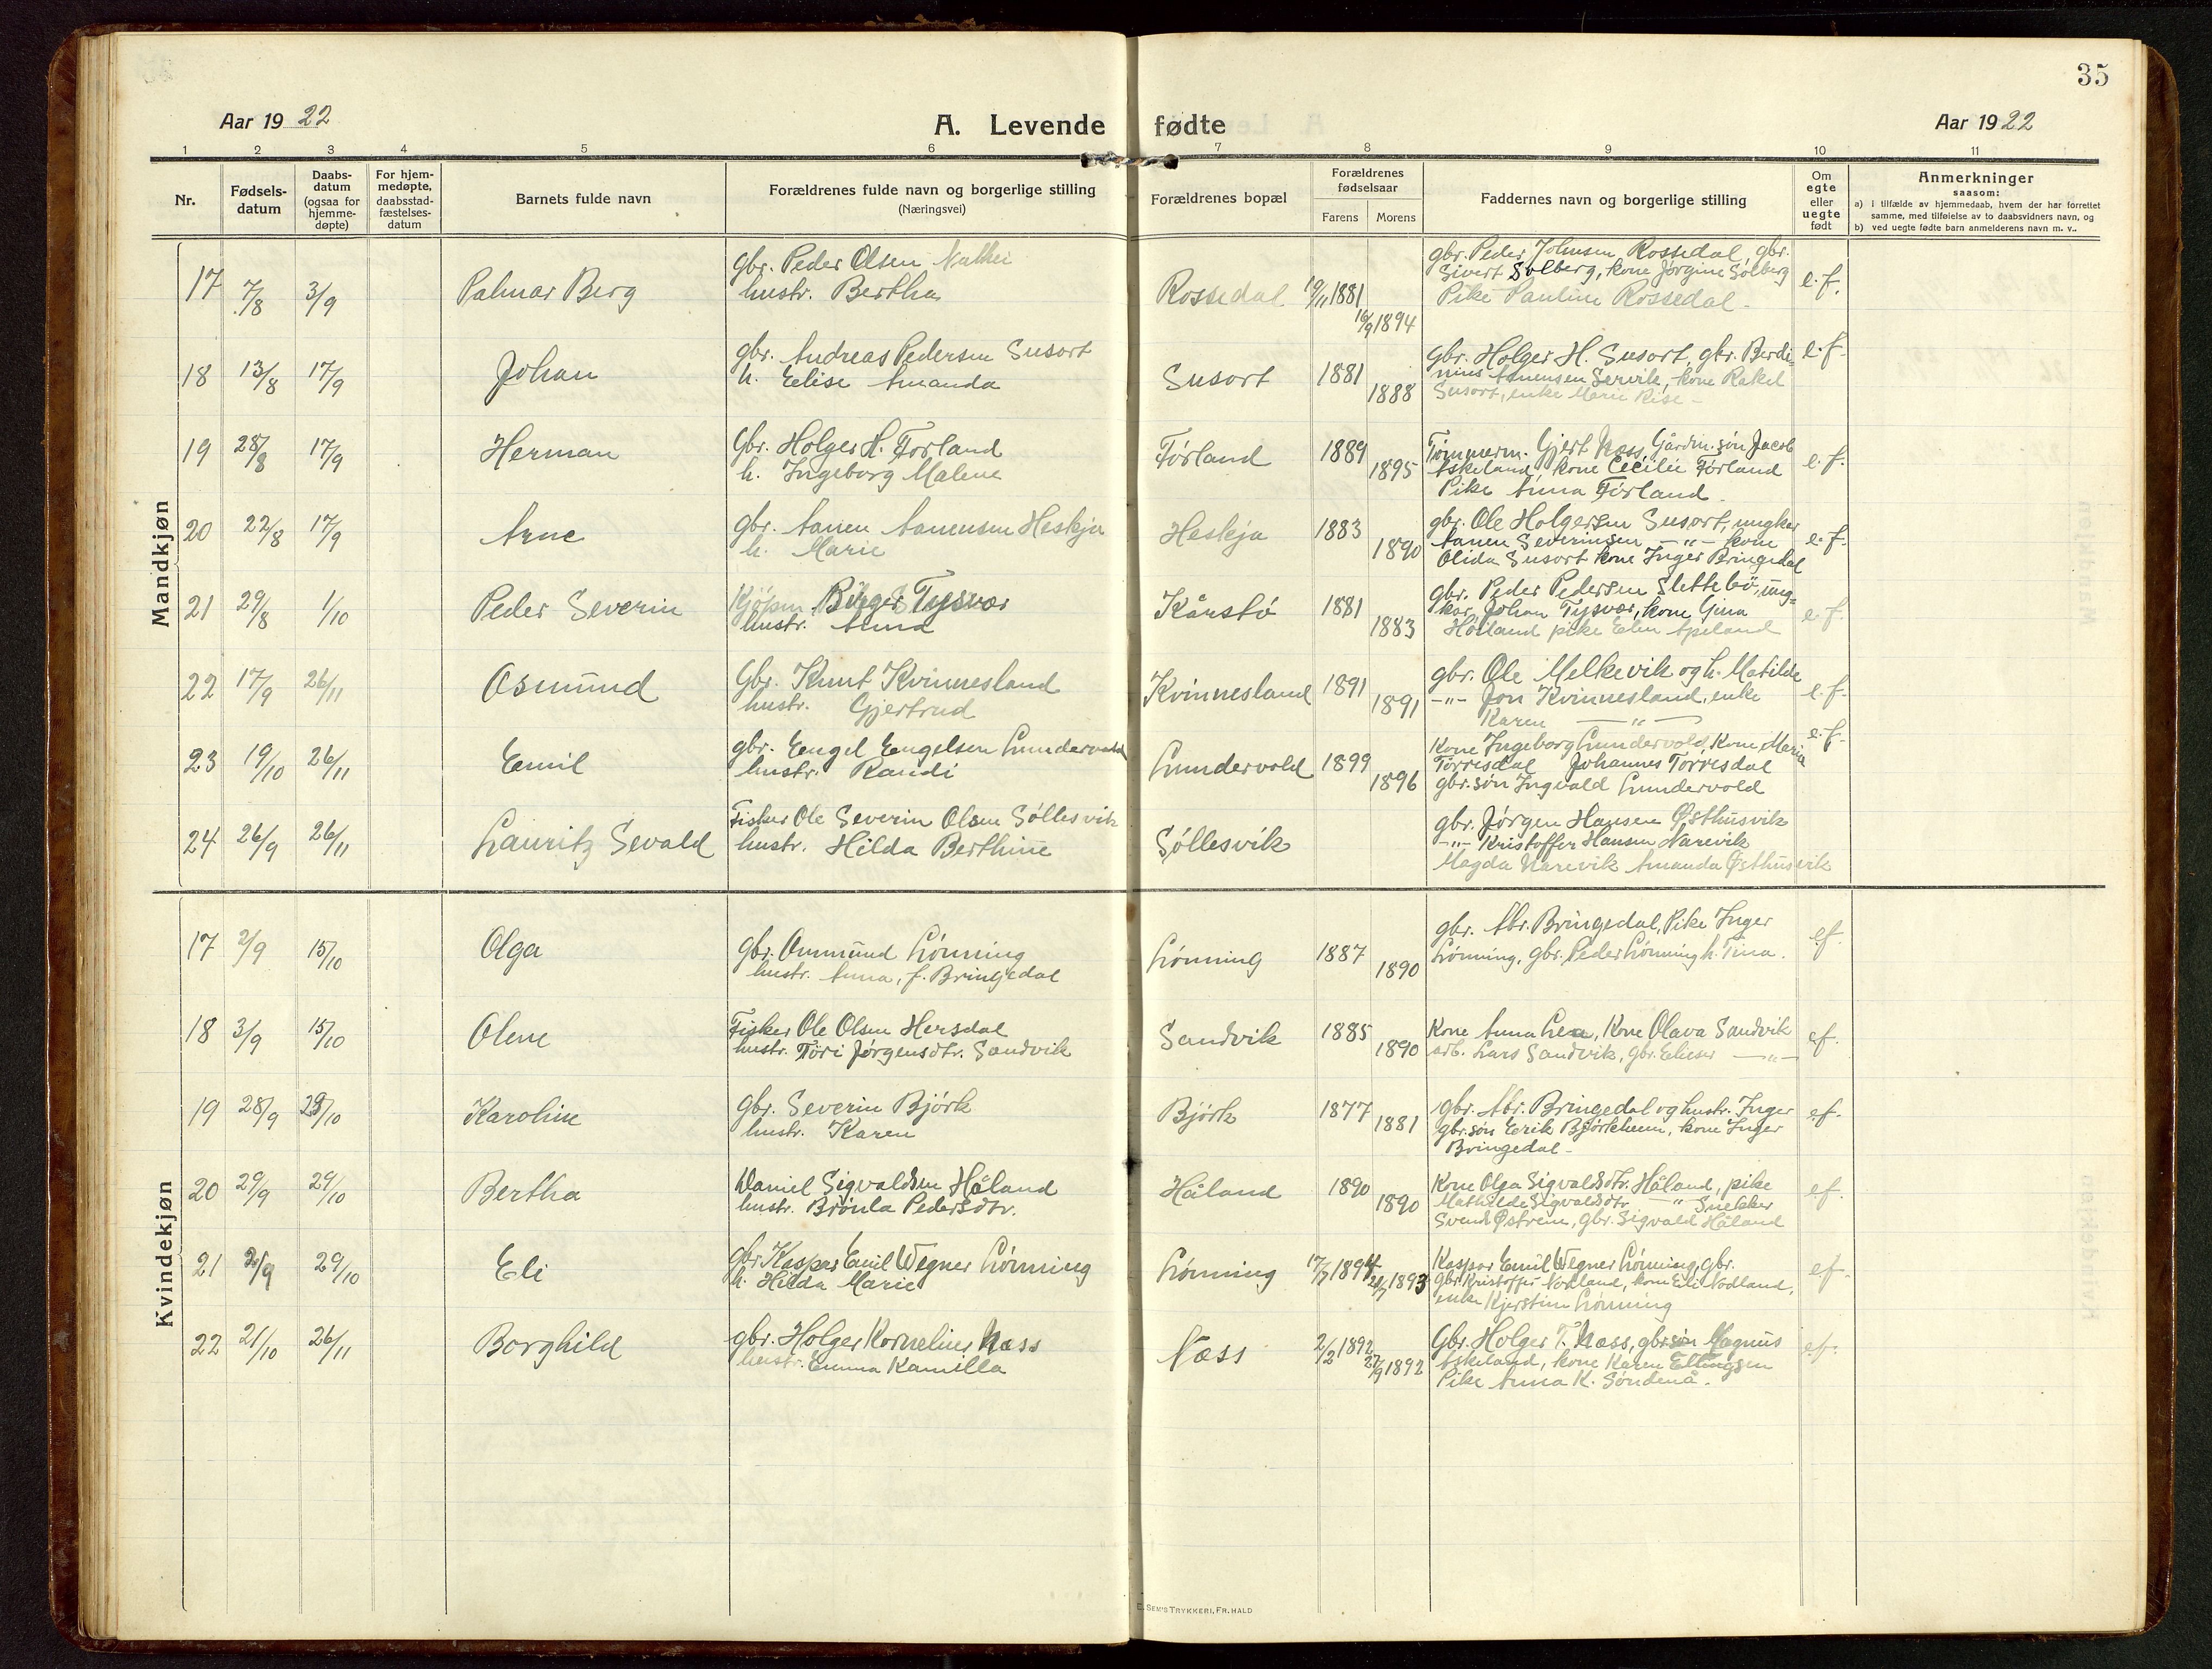 35
Aar 1922
A. Levende fødte
Aar 1922
1 2 3 4 5 6 7 8 9 10 11
Nr.
Fødsels-
datum
Daabs-
datum
(ogsaa for
hjemme-
døpte)
For hjem-
medøpte,
daabsstad-
fæstelses-
datum
Barnets fulde navn
Forældrenes fulde navn og borgerlige stilling
(Næringsvei)
Forældrenes bopæl
Forældrenes
fødselsaar
Farens Morens
Faddernes navn og borgerlige stilling
Om
egte
eller
uegte
født
Anmerkninger
saasom:
a) i tilfælde av hjemmedaab, hvem der har forrettet
samme, med tilføielse av to daabsvidners navn, og
b) ved uegte fødte barn anmelderens navn m. v..
Mandkjøn
17 7/8 3/9 Palmar Berg
gbr. Peder Olsen
hustr. Bertha
Rossedal 19/11 1881 16/9 1894
gbr. Peder Johnsen Rossedal, gbr.
Sivert Solberg, kone Jørgine Solberg
Pike Pauline Rossedal -
e.f.
18 13/8 17/9 Johan
gbr. Andreas Pedersen Susort
h. Elise Amanda
Susort 1881 1888
gbr. Holger H. Susort, gbr. Berdi-
nius Amensen Servik, kone Rakel
Susort, enke Marie Rise -
e.f.
19 28/8 17/9 Herman
Gbr. Holger H. Førland
h. Ingeborg Malene
Førland 1889 1895
Tømmerm. Gjert Næss, Gårdm. søn Jacob
Askeland, kone Cecilie Førland
Pike Anna Førland.
e.f.
20 22/8 17/9 Arne
gbr. Aanen Aanensen Heskja
h. Marie
Heskja 1883 1890
gbr. Ole Holgersen Susort, ungkar
Aanen Severinsen -"- kone
Olida Susort kone Inger Bringedal
e.f.
21 29/8 1/10 Peder Severin
Kjøpm. Birger Tysvær
hustr. Anna
Kårstø 1881 1883
gbr. Peder Pedersen Slettebø, ung-
kar, Johan Tysvær, kone Gina
Høiland pike Elen Apeland
e.f.
22 17/9 26/11 Osmund
Gbr. Knut Kvinnesland
hustr. Gjertrud
Kvinnesland 1891 1891
gbr. Ole Melkevik og h. Matilde
-"- Jon Kvinnesland, enke
Karen -"-
e.f.
23 19/10 26/11 Emil
gbr. Engel Engelsen Lundervold
hustr. Randi
Lundervold 1899 1896
Kone Ingeborg Lundervold, Kone Maria
Torrisdal Johannes Torrisdal
gbr. søn Ingvald Lundervold
e.f.
24 26/9 26/11 Lauritz Sevald
Fisker Ole Severin Olsen Søllesvik
hustr. Hilda Berthine
Søllesvik
gbr. Jørgen Hansen Østhusvik
-"- Kristoffer Hansen Narevik
Magda Narevik Amanda Østhusvik
Kvindekjøn
17 2/9 15/10 Olga
gbr. Ommund Lønning
hustr. Anna, f. Bringedal
Lønning 1887 1890
gbr. Abr. Bringedal, Pike Inger
Lønning, gbr. Peder Lønning h. Tina.
e.f.
18 3/9 15/10 Olene
Fisker Ole Olsen Hersdal
hustr. Tori Jørgensdtr. Sandvik
Sandvik 1885 1890
Kone Anna Lea, Kone Olava Sandvik
arb. Lars Sandvik, gbr. Elieser -"-
ef.
19 28/9 29/10 Karoline
gbr. Severin Bjørk
hustr. Karen
Bjørk 1877 1881
gbr. Abr. Bringedal og hustr. Inger
gbr. søn Erik Bjørkheim, kone Inger
Bringedal -
ef.
20 29/9 29/10 Bertha
Daniel Sigvaldsen Håland
hustr. Brønla Pedersdtr.
Håland 1890 1890
Kone Olga Sigvaldsdtr. Håland, pike
Mathilde Sigvaldsdtr. -"- Snekker
Svend Østrem, gbr. Sigvald Håland
ef.
21 /9 29/10 Eli
gbr. Kaspar Emil Wegner Lønning
h. Hilda Marie
Lønning 17/7 1894 20/7 1893
Kaspar Emil Wegner Lønning, gbr.
gbr. Kristoffer Nodland, kone Eli Nodland,
enke Kjerstine Lønning
ef.
22 21/10 26/11 Borghild
gbr. Holger Kornelius Næss
hustr. Emma Kamilla
Næss 2/2 1892 27/9 1892
Gbr. Holger T. Næss, gbr. søn Magnus
Askeland, kone Karen Ellingsen
Pike Anna K. Søndenå.
ef.
E. SEM'S TRYKKERI, FR.HALD